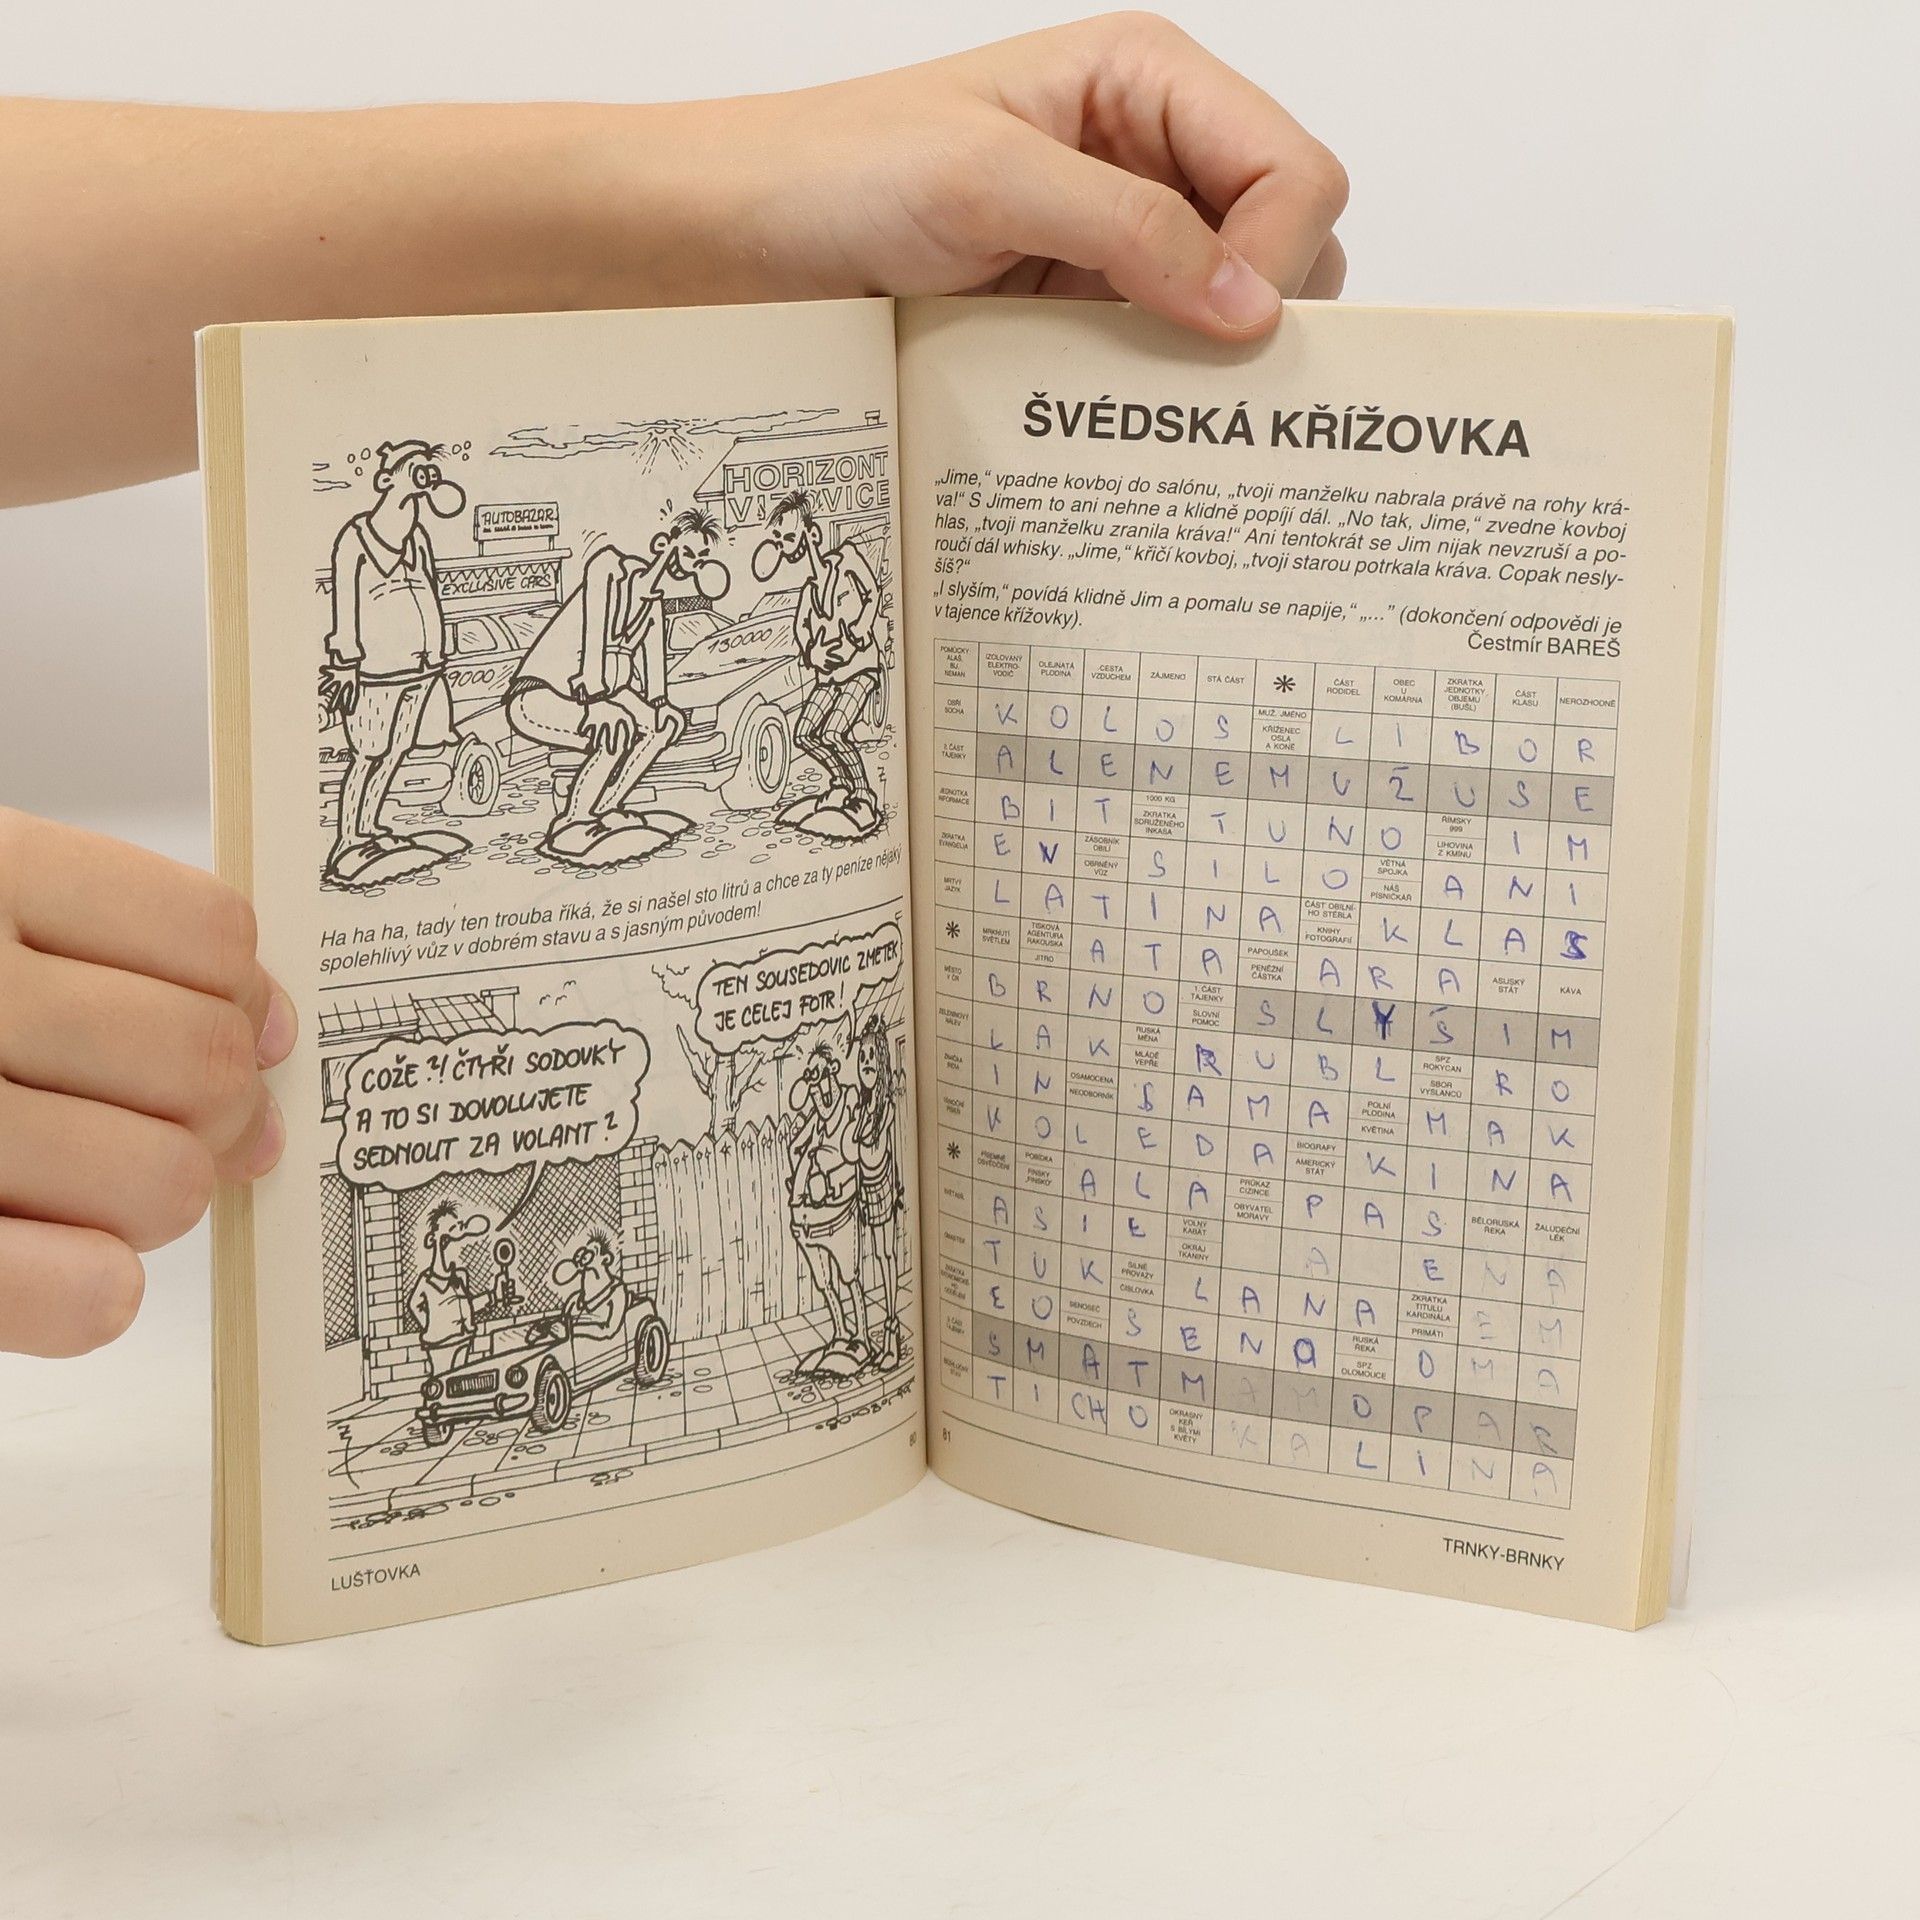 HORIZONT
VIZOVICE
AUTOBAZAR
EXCLUSIVE CARS
9000
130000
Ha ha ha, tady ten trouba říká, že si našel sto litrů a chce za ty peníze nějaký
spolehlivý vůz v dobrém stavu a s jasným původem!
TEN SOUSEDOVIC ZMETEK
JE CELEJ FOTR!
COŽE?! ČTYŘI SODOVKY
A TO SI DOVOLUJETE
SEDNOUT ZA VOLANT?
80
LUŠŤOVKA
ŠVÉDSKÁ KŘÍŽOVKA
„Jime,“ vpadne kovboj do salónu, „tvoji manželku nabrala právě na rohy krá-
va!“ S Jimem to ani nehne a klidně popíjí dál. „No tak, Jime,“ zvedne kovboj
hlas, „tvoji manželku zranila kráva!“ Ani tentokrát se Jim nijak nevzruší a po-
roučí dál whisky. „Jime,“ křičí kovboj, „tvoji starou potrkala kráva. Copak nesly-
šíš?“
„I slyším,“ povídá klidně Jim a pomalu se napije,“ „...“ (dokončení odpovědi je
v tajence křížovky).
Čestmír BAREŠ
POMŮCKY: ALAŠ, BU, NEMAN IZOLOVANÝ ELEKTRO-VODIČ OLEJNATÁ PLODINA CESTA VZDUCHEM ZÁJMENO STÁ ČÁST * ČÁST RODIDEL OBEC U KOMÁRNA ZKRATKA JEDNOTKY OBJEMU (BUŠL) ČÁST KLASU NEROZHODNĚ
OBŘÍ SOCHA K O L O S MUŽ. JMÉNO KŘÍŽENEC OSLA A KONĚ L I B O R
2. ČÁST TAJENKY A L E N E M U Ž U S E
JEDNOTKA INFORMACE B I T 1000 KG ZKRATKA SDRUŽENÉHO INKASA T U N O ŘÍMSKY 999 LIHOVINA Z KMÍNU I M
ZKRATKA EVANGELIA E V ZÁSOBNÍK OBILÍ OBRNĚNÝ VŮZ S I L O VĚTNÁ SPOJKA NÁŠ PÍSNIČKÁŘ A N I
MRTVÝ JAZYK L A T I N A ČÁST OBILNÍ-HO STÉBLA KNIHY FOTOGRAFIÍ K L A S
* MRKNUTÍ SVĚTLEM TISKOVÁ AGENTURA RAKOUSKA JITRO A T A PAPOUŠEK PENĚŽNÍ ČÁSTKA A R A ASIJSKÝ STÁT KÁVA
MĚSTO V ČR B R N O 1. ČÁST TAJENKY SLOVNÍ POMOC S L Y Š I M
ZELENINOVÝ NÁLEV L A K RUSKÁ MĚNA MLÁDĚ VEPŘE R U B L SPZ ROKYCAN SBOR VYSLANCŮ R O
ZNAČKA INDIA I N OSAMOCENA NEODBORNÍK S A M A POLNÍ PLODINA KVĚTINA M A K
VÁNOČNÍ PÍSEŇ K O L E D A BIOGRAFY AMERICKÝ STÁT K I N A
* PÍSEMNÉ OSVĚDČENÍ POBÍDKA FINSKY „FINSKO“ A L A PRŮKAZ CIZINCE OBYVATEL MORAVY P A S BĚLORUSKÁ ŘEKA ŽALUDEČNÍ LÉK
A S I E VOLNÝ KABÁT OKRAJ TKANINY A E N A
OMASTEK T U K SILNÉ PROVAZY ČÍSLOVKA L A N A ZKRATKA TITULU KARDINÁLA PRIMÁTI E M
E O SENOSEČ POVZDECH S E N O RUSKÁ ŘEKA SPZ OLOMOUCE O M A
3. ČÁST TAJENKY S M A T M A M O P A R
T I CH O OKRASNÝ KEŘ S BÍLÝMI KVĚTY K A L I N A
81
TRNKY-BRNKY